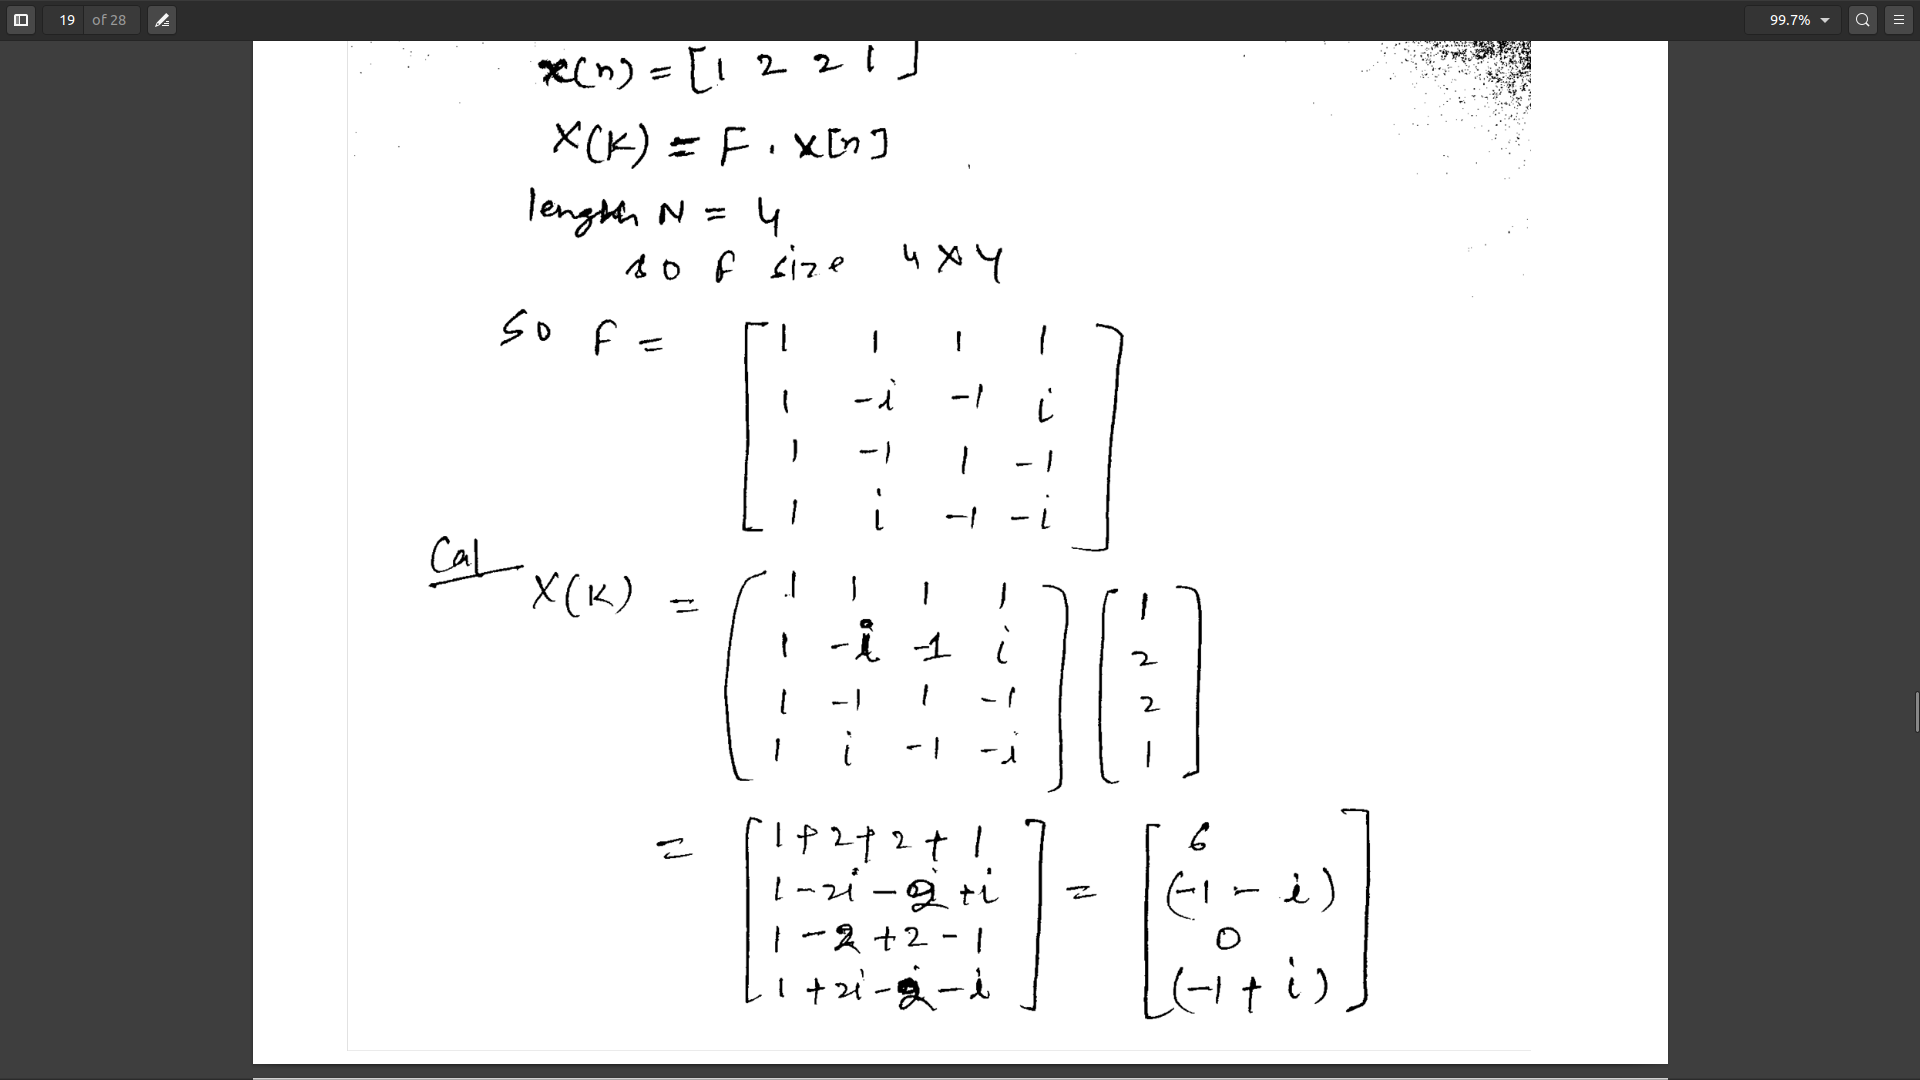 19 of 28 99.7%
x(n) = [1 2 2 1]
X(K) = F . x[n]
length N = 4
so F size 4 X 4
So F = [1 1 1 1
1 -i -1 i
1 -1 1 -1
1 i -1 -i]
Cal
X(K) = (1 1 1 1) [1
1 -i -1 i 2
1 -1 1 -1 2
1 i -1 -i 1]
= [1+2+2+1] = [6
1-2i-2+i (-1-i)
1-2+2-1 0
1+2i-2-i (-1+i)]